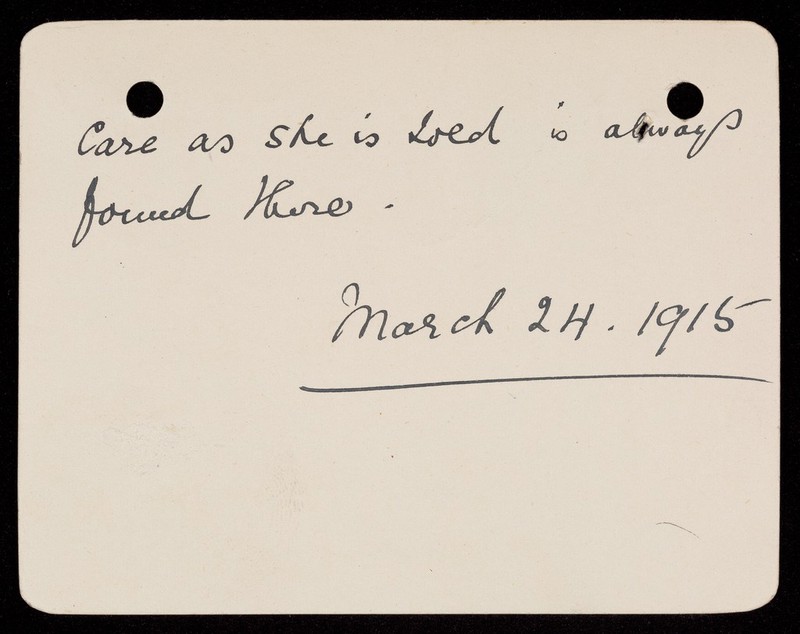 Care as she is told is always
found there.
March 24. 1915